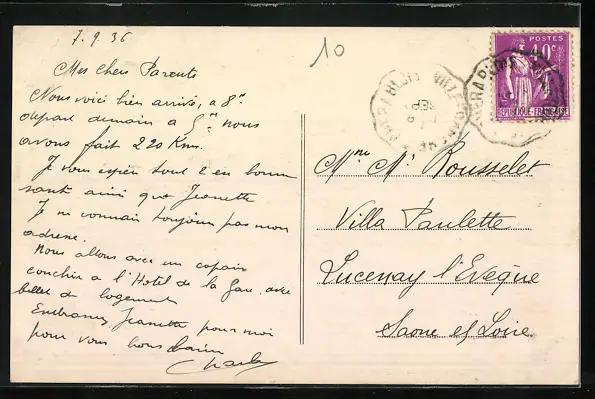 7.9.36
10
Mes chers Parents
Nous voici bien arrivé, a 8h
depart demain a 5h nous
avons fait 220 Kms.
Je vous espère tout 2 en bonne
santé ainsi que Jeanette
Je ne connais toujours pas mon
adresse.
Nous allons avec un copain
coucher a l'Hotel de la Gare avec
billet de logement
Embrassez Jeanette pour moi
pour vous bons baisers
Charles
POSTES
40c
REPUBLIQUE FRANÇAISE
Mme Mr Rousselet
Villa Paulette
Lucenay l'Evêque
Saone et Loire